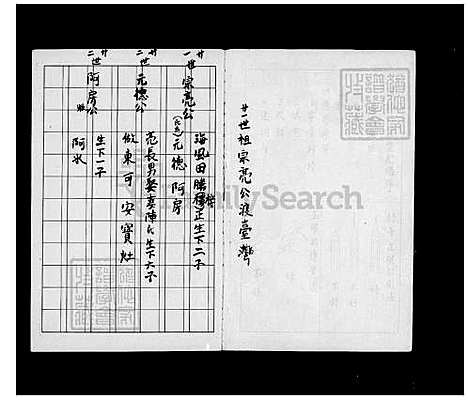 廿一世祖宗亮公渡臺灣
廿一世 宗亮公
海風田勝 正生下二子
元德 阿房
廿二世 元德公
亮長男娶妻陳氏生下六子
傲 東 可 安 寶 灶
廿二世 阿房公
生下一子
阿水
FamilySearch